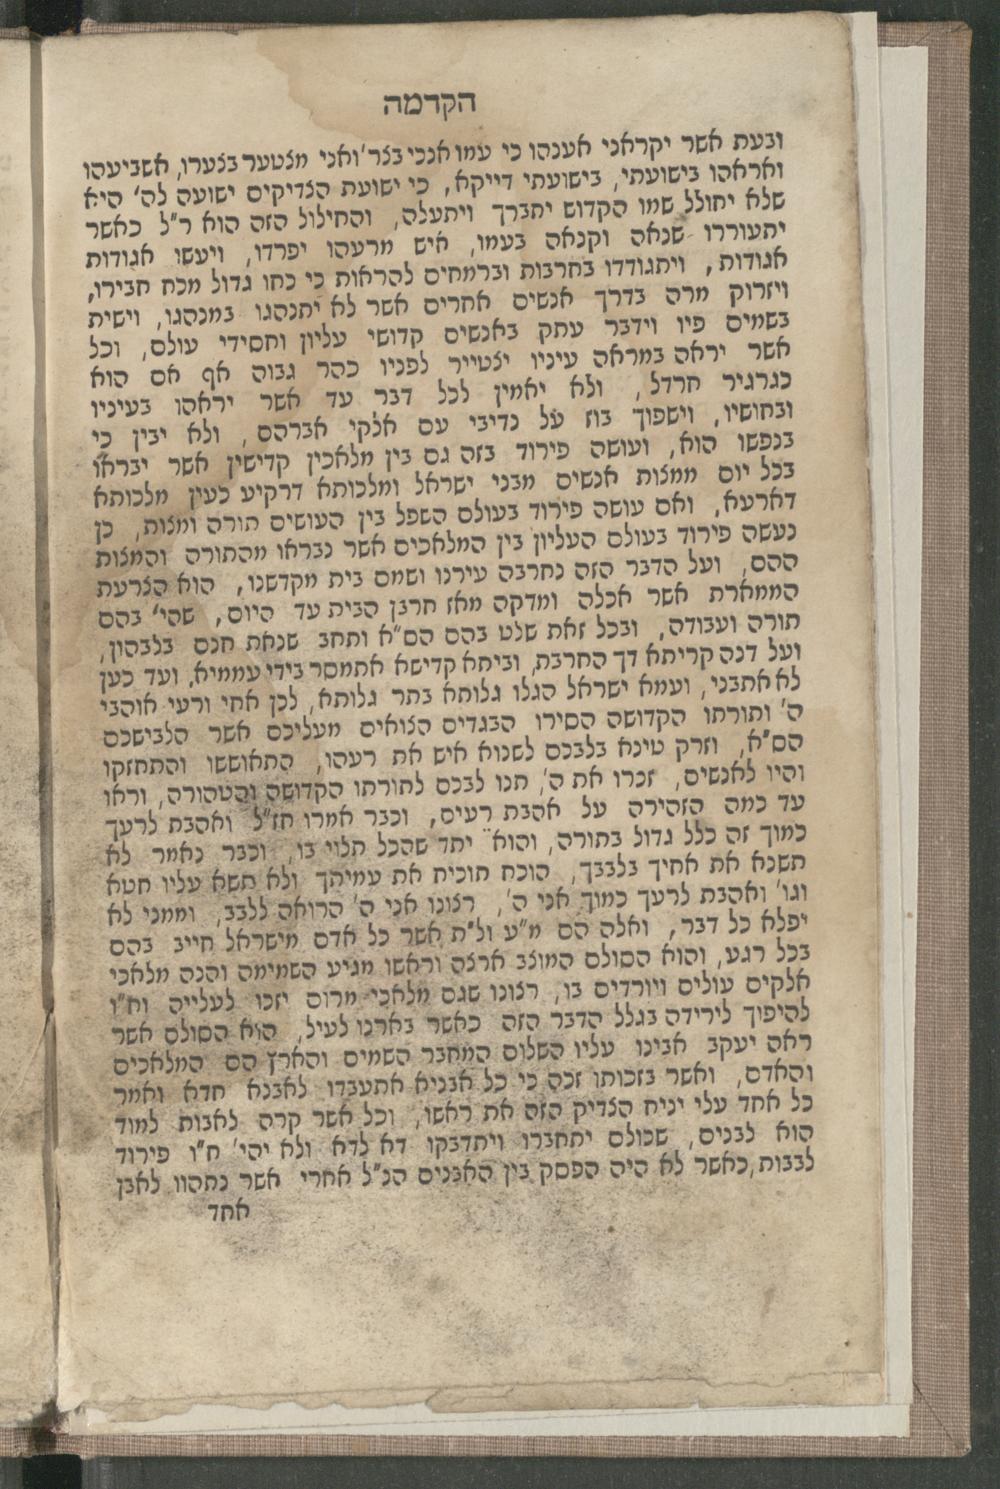 הקדמה
ובעת אשר יקראני אענהו כי עמו אנכי בצר' ואני מצטער בצערו, אשביעהו
ואראהו בישועתי, בישועתי דייקא, כי ישועת הצדיקים ישועה לה' היא
שלא יחולל שמו הקדוש יתברך ויתעלה, והחילול הזה הוא ר"ל כאשר
יתעוררו שנאה וקנאה בעמו, איש מרעהו יפרדו, ויעשו אגודות
אגודות, ויתגודדו בחרבות וברמחים להראות כי כחו גדול מכח חבירו,
ויזרוק מרה בדרך אנשים אחרים אשר לא יתנהגו במנהגו, וישית
בשמים פיו וידבר עתק באנשים קדושי עליון וחסידי עולם, וכל
אשר יראה במראה עיניו יצטייר לפניו כהר גבוה אף אם הוא
כגרגיר חרדל, ולא יאמין לכל דבר עד אשר יראהו בעיניו
ובחושיו, וישפוך בוז על נדיבי עם אלקי אברהם, ולא יבין כי
בנפשו הוא, ועושה פירוד בזה גם בין מלאכין קדישין אשר יבראו
בכל יום ממצות אנשים מבני ישראל ומלכותא דרקיע כעין מלכותא
דארעא, ואם עושה פירוד בעולם השפל בין העושים תורה ומצות, כן
נעשה פירוד בעולם העליון בין המלאכים אשר נבראו מהתורה והמצות
ההם, ועל הדבר הזה נחרבה עירנו ושמם בית מקדשנו, הוא הצרעת
הממארת אשר אכלה ומדקה מאז חרבן הבית עד היום, שהי' בהם
תורה ועבודה, ובכל זאת שלט בהם הס"א ותחב שנאת חנם בלבהון,
ועל דנה קריתא דך החרבת, וביתא קדישא אתמסר בידי עממיא, ועד כען
לא אתבני, ועמא ישראל הגלו גלותא בתר גלותא, לכן אחי ורעי אוהבי
ה' ותורתו הקדושה הסירו הבגדים הצואים מעליכם אשר הלבישכם
הס"א, וזרק טינא בלבכם לשנוא איש את רעהו, התאוששו והתחזקו
והיו לאנשים, זכרו את ה', תנו לבכם לתורתו הקדושה והטהורה, וראו
עד כמה הזהירה על אהבת רעים, וכבר אמרו חז"ל ואהבת לרעך
כמוך זה כלל גדול בתורה, והוא יתד שהכל תלוי בו, וכבר נאמר לא
תשנא את אחיך בלבבך, הוכח תוכיח את עמיתך ולא תשא עליו חטא
וגו' ואהבת לרעך כמוך אני ה', רצונו אני ה' הרואה ללבב, וממני לא
יפלא כל דבר, ואלה הם מ"ע ול"ת אשר כל אדם מישראל חייב בהם
בכל רגע, והוא הסולם המוצב ארצה וראשו מגיע השמימה והנה מלאכי
אלקים עולים ויורדים בו, רצונו שגם מלאכי מרום יזכו לעלייה וח"ו
להיפוך לירידה בגלל הדבר הזה כאשר בארנו לעיל, הוא הסולם אשר
ראה יעקב אבינו עליו השלום המחבר השמים והארץ הם המלאכים
והאדם, ואשר בזכותו זכה כי כל אבניא אתעבדו לאבנא חדא ואמר
כל אחד עלי יניח הצדיק הזה את ראשו, וכל אשר קרה לאבות למוד
הוא לבנים, שכולם יתחברו ויתדבקו דא לדא ולא יהי' ח"ו פירוד
לבבות, כאשר לא היה הפסק בין האבנים הנ"ל אחרי אשר נתהוו לאבן
אחד